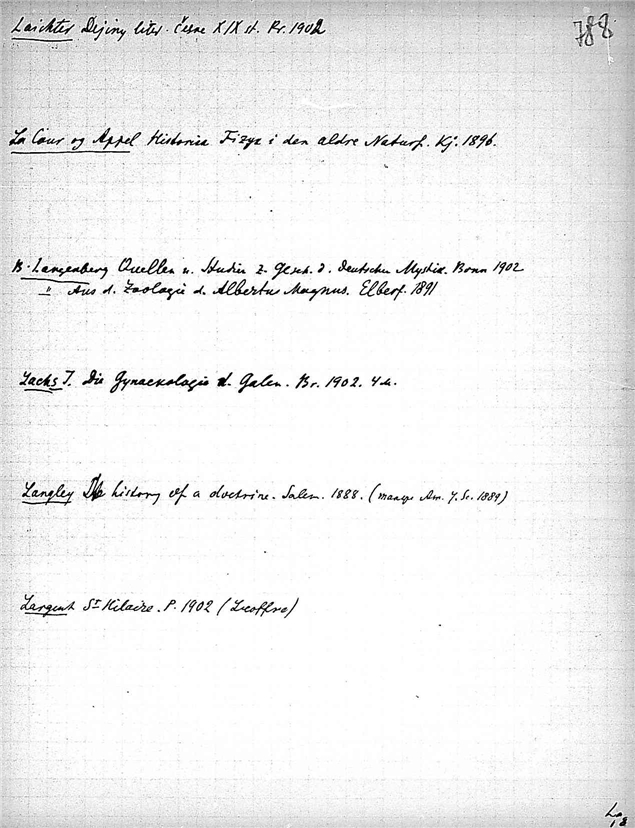 788
Laichter Dějiny liter. česke XIX st. Pr. 1902
La Cour og Appel Historia Fizyz i den aldre Naturf. Kj. 1896.
B. Langenberg Quellen u. Studien z. Gesch. d. deutschen Mystik. Bonn 1902
" Aus d. Zoologie d. Albertus Magnus. Elberf. 1891
Lachs J. Die Gynaekologie d. Galen. Br. 1902. 4 M.
Langley The history of a doctrine. Salem. 1888. ( Am. J. Sc. 1889)
Largent St Hilaire. P. 1902 (Lecoffre)
La
18